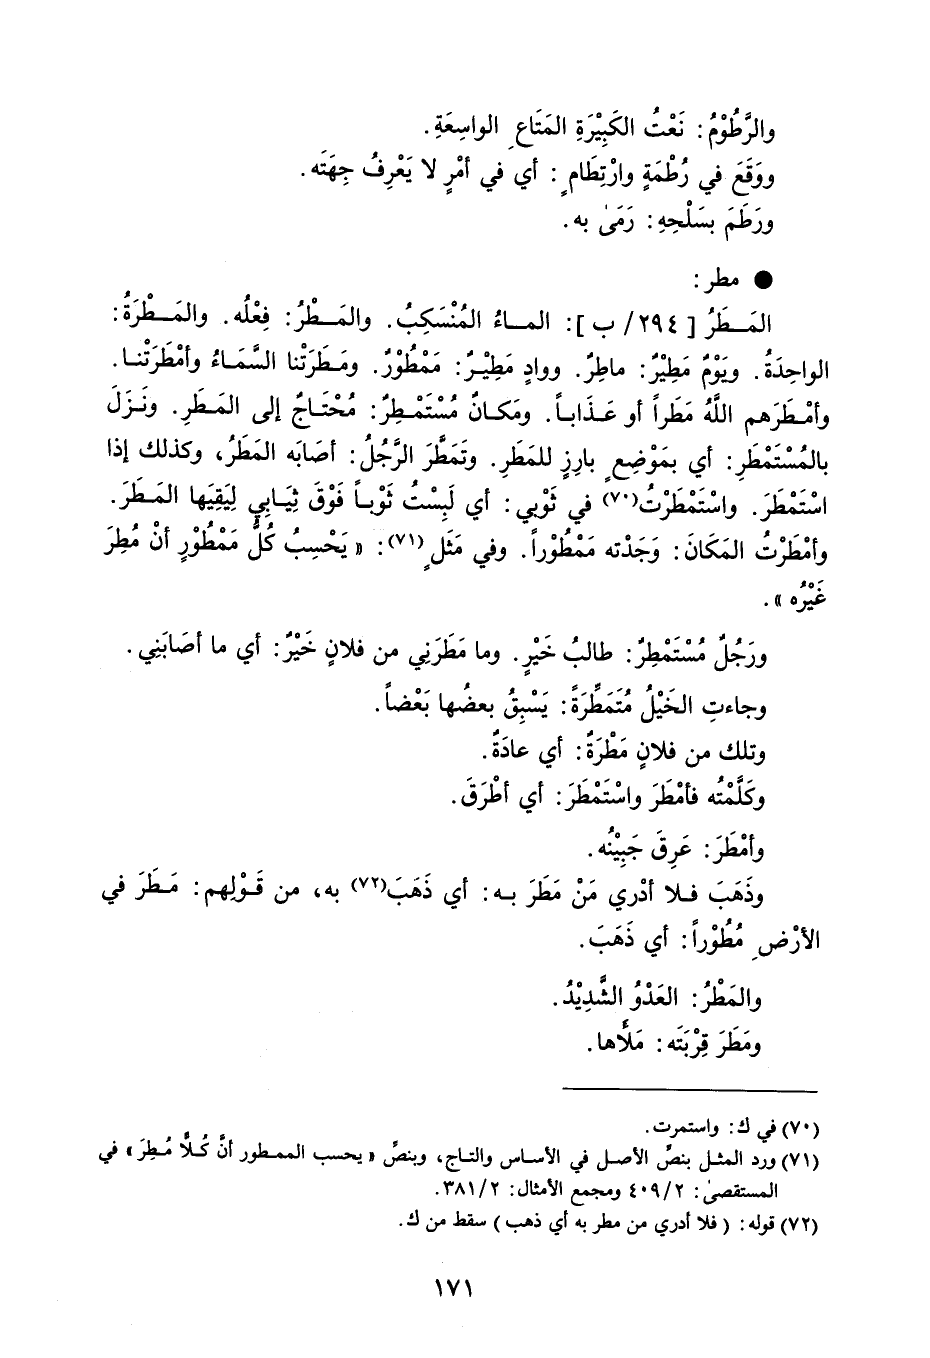 والرَّطُوْمُ: نَعْتُ الكَبِيْرَةِ المَتَاعِ الواسِعَةِ.
ووَقَعَ في رُطْمَةٍ وارْتِطَامٍ: أي في أمْرٍ لا يَعْرِفُ جِهَتَه.
ورَطَمَ بسَلْحِهِ: رَمَىٰ به.
● مطر:
المَطَرُ [٢٩٤/ ب]: الماءُ المُنْسَكِبُ. والمَطْرُ: فِعْلُه. والمَطْرَةُ:
الواحِدَةُ. ويَوْمٌ مَطِيْرٌ: ماطِرٌ. ووادٍ مَطِيْرٌ: مَمْطُوْرٌ. ومَطَرَتْنا السَّمَاءُ وأمْطَرَتْنا.
وأمْطَرَهم اللَّهُ مَطَراً أو عَذَاباً. ومَكانٌ مُسْتَمْطِرٌ: مُحْتَاجٌ إلى المَطَرِ. ونَزَلَ
بالمُسْتَمْطَرِ: أي بمَوْضِعٍ بارِزٍ للمَطَرِ. وتَمَطَّرَ الرَّجُلُ: أصَابَه المَطَرُ، وكذلك إذا
اسْتَمْطَرَ. واسْتَمْطَرْتُ(٧٠) في ثَوْبي: أي لَبِسْتُ ثَوْباً فَوْقَ ثِيَابي لِيَقِيَها المَطَرَ.
وأمْطَرْتُ المَكَانَ: وَجَدْته مَمْطُوْراً. وفي مَثَلٍ(٧١): « يَحْسِبُ كُلُّ مَمْطُوْرٍ أنْ مُطِرَ
غَيْرُه ».
ورَجُلٌ مُسْتَمْطِرٌ: طالبُ خَيْرٍ. وما مَطَرَني من فلانٍ خَيْرٌ: أي ما أصَابَنِي.
وجاءتِ الخَيْلُ مُتَمَطِّرَةً: يَسْبِقُ بعضُها بَعْضاً.
وتلك من فلانٍ مَطْرَةٌ: أي عادَةٌ.
وكَلَّمْتُه فأمْطَرَ واسْتَمْطَرَ: أي أطْرَقَ.
وأمْطَرَ: عَرِقَ جَبِيْنُه.
وذَهَبَ فلا أدْري مَنْ مَطَرَ به: أي ذَهَبَ(٧٢) به، من قَوْلِهم: مَطَرَ في
الأرْضِ مُطُوْراً: أي ذَهَبَ.
والمَطْرُ: العَدْوُ الشَّدِيْدُ.
ومَطَرَ قِرْبَتَه: مَلَأها.
(٧٠) في ك: واستمرت.
(٧١) ورد المثل بنصِّ الأصل في الأساس والتاج، وبنصِّ « يحسب الممطور أنَّ كُلًّا مُطِرَ » في
المستقصىٰ: ٤٠٩/٢ ومجمع الأمثال: ٣٨١/٢.
(٧٢) قوله: ( فلا أدري من مطر به أي ذهب ) سقط من ك.
١٧١